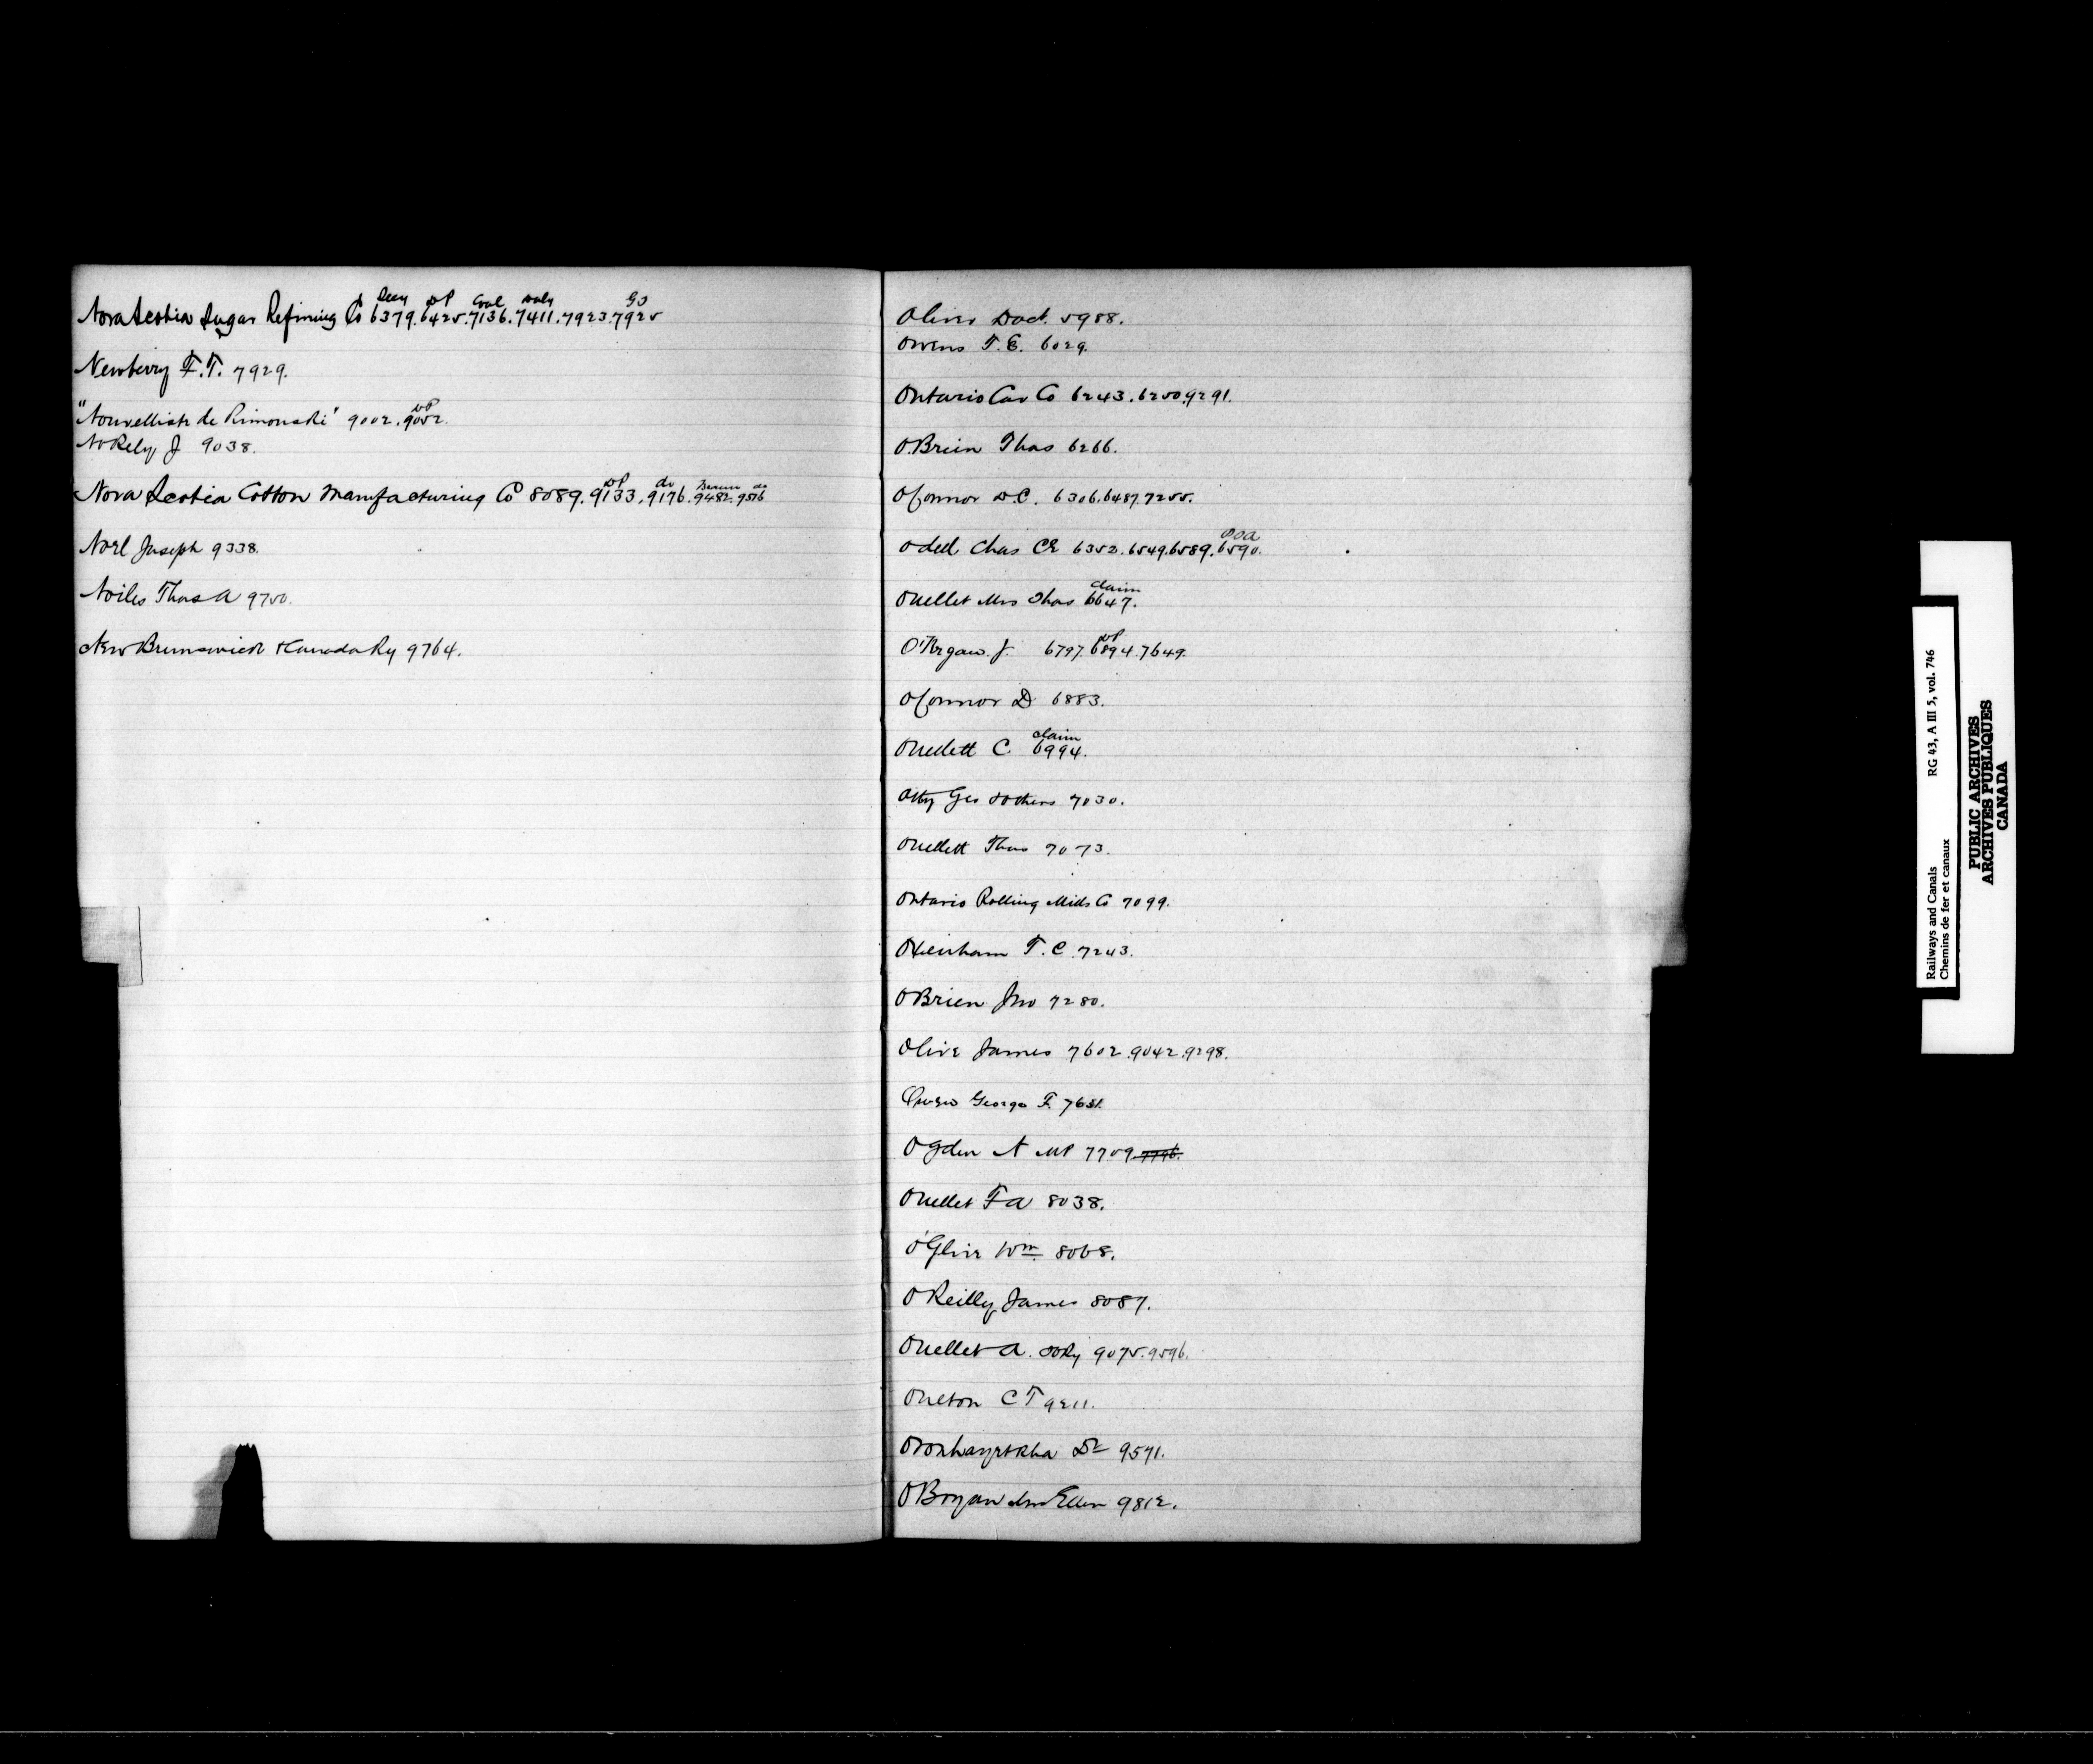 Nova Scotia Sugar Refining Co 6379. 6425. 7136. 7411. 7923. 7925
Newberry F.T. 7929.
"Nouvelliste de Rimouski" 9002. 9052.
J 9038.
Nova Scotia Cotton Manufacturing Co 8089. 9133. 9176. 9482. 9576
Noel Joseph 9338.
Noiles Thos A 9750.
New Brunswick & Canada Ry 9764.
Oliver Doct. 5988.
Owens T.E. 6029.
Ontario Car Co 6243. 6250. 9291.
O.Brien Thos 6266.
OConnor D.C. 6306. 6487. 7255.
Odell Chas CE 6352. 6549. 6589. 6590.
claim
Ouellet Mrs Thos 6647.
DP
O'Regan. J. 6797. 6894. 7649.
OConnor D 6883.
claim
Ouellett C 6994.
Otty Geo & others 7030.
Ouellett Thos 7073.
Ontario Rolling Mills Co 7099.
T.C. 7243.
OBrien Jno 7280.
Olive James 7602. 9042. 9298.
Owen George F. 7631.
Ogden A MP 7709. 7796.
Ouellet F A 8038.
Wm 8068.
OReilly James 8087.
Ouellet A. 9075. 9596.
Oulton C T 9211.
Oronhyatekha Dr 9571.
Ellen 9812.
Railways and Canals RG 43, A III 5, vol. 746
Chemins de fer et canaux
PUBLIC ARCHIVES
ARCHIVES PUBLIQUES
CANADA